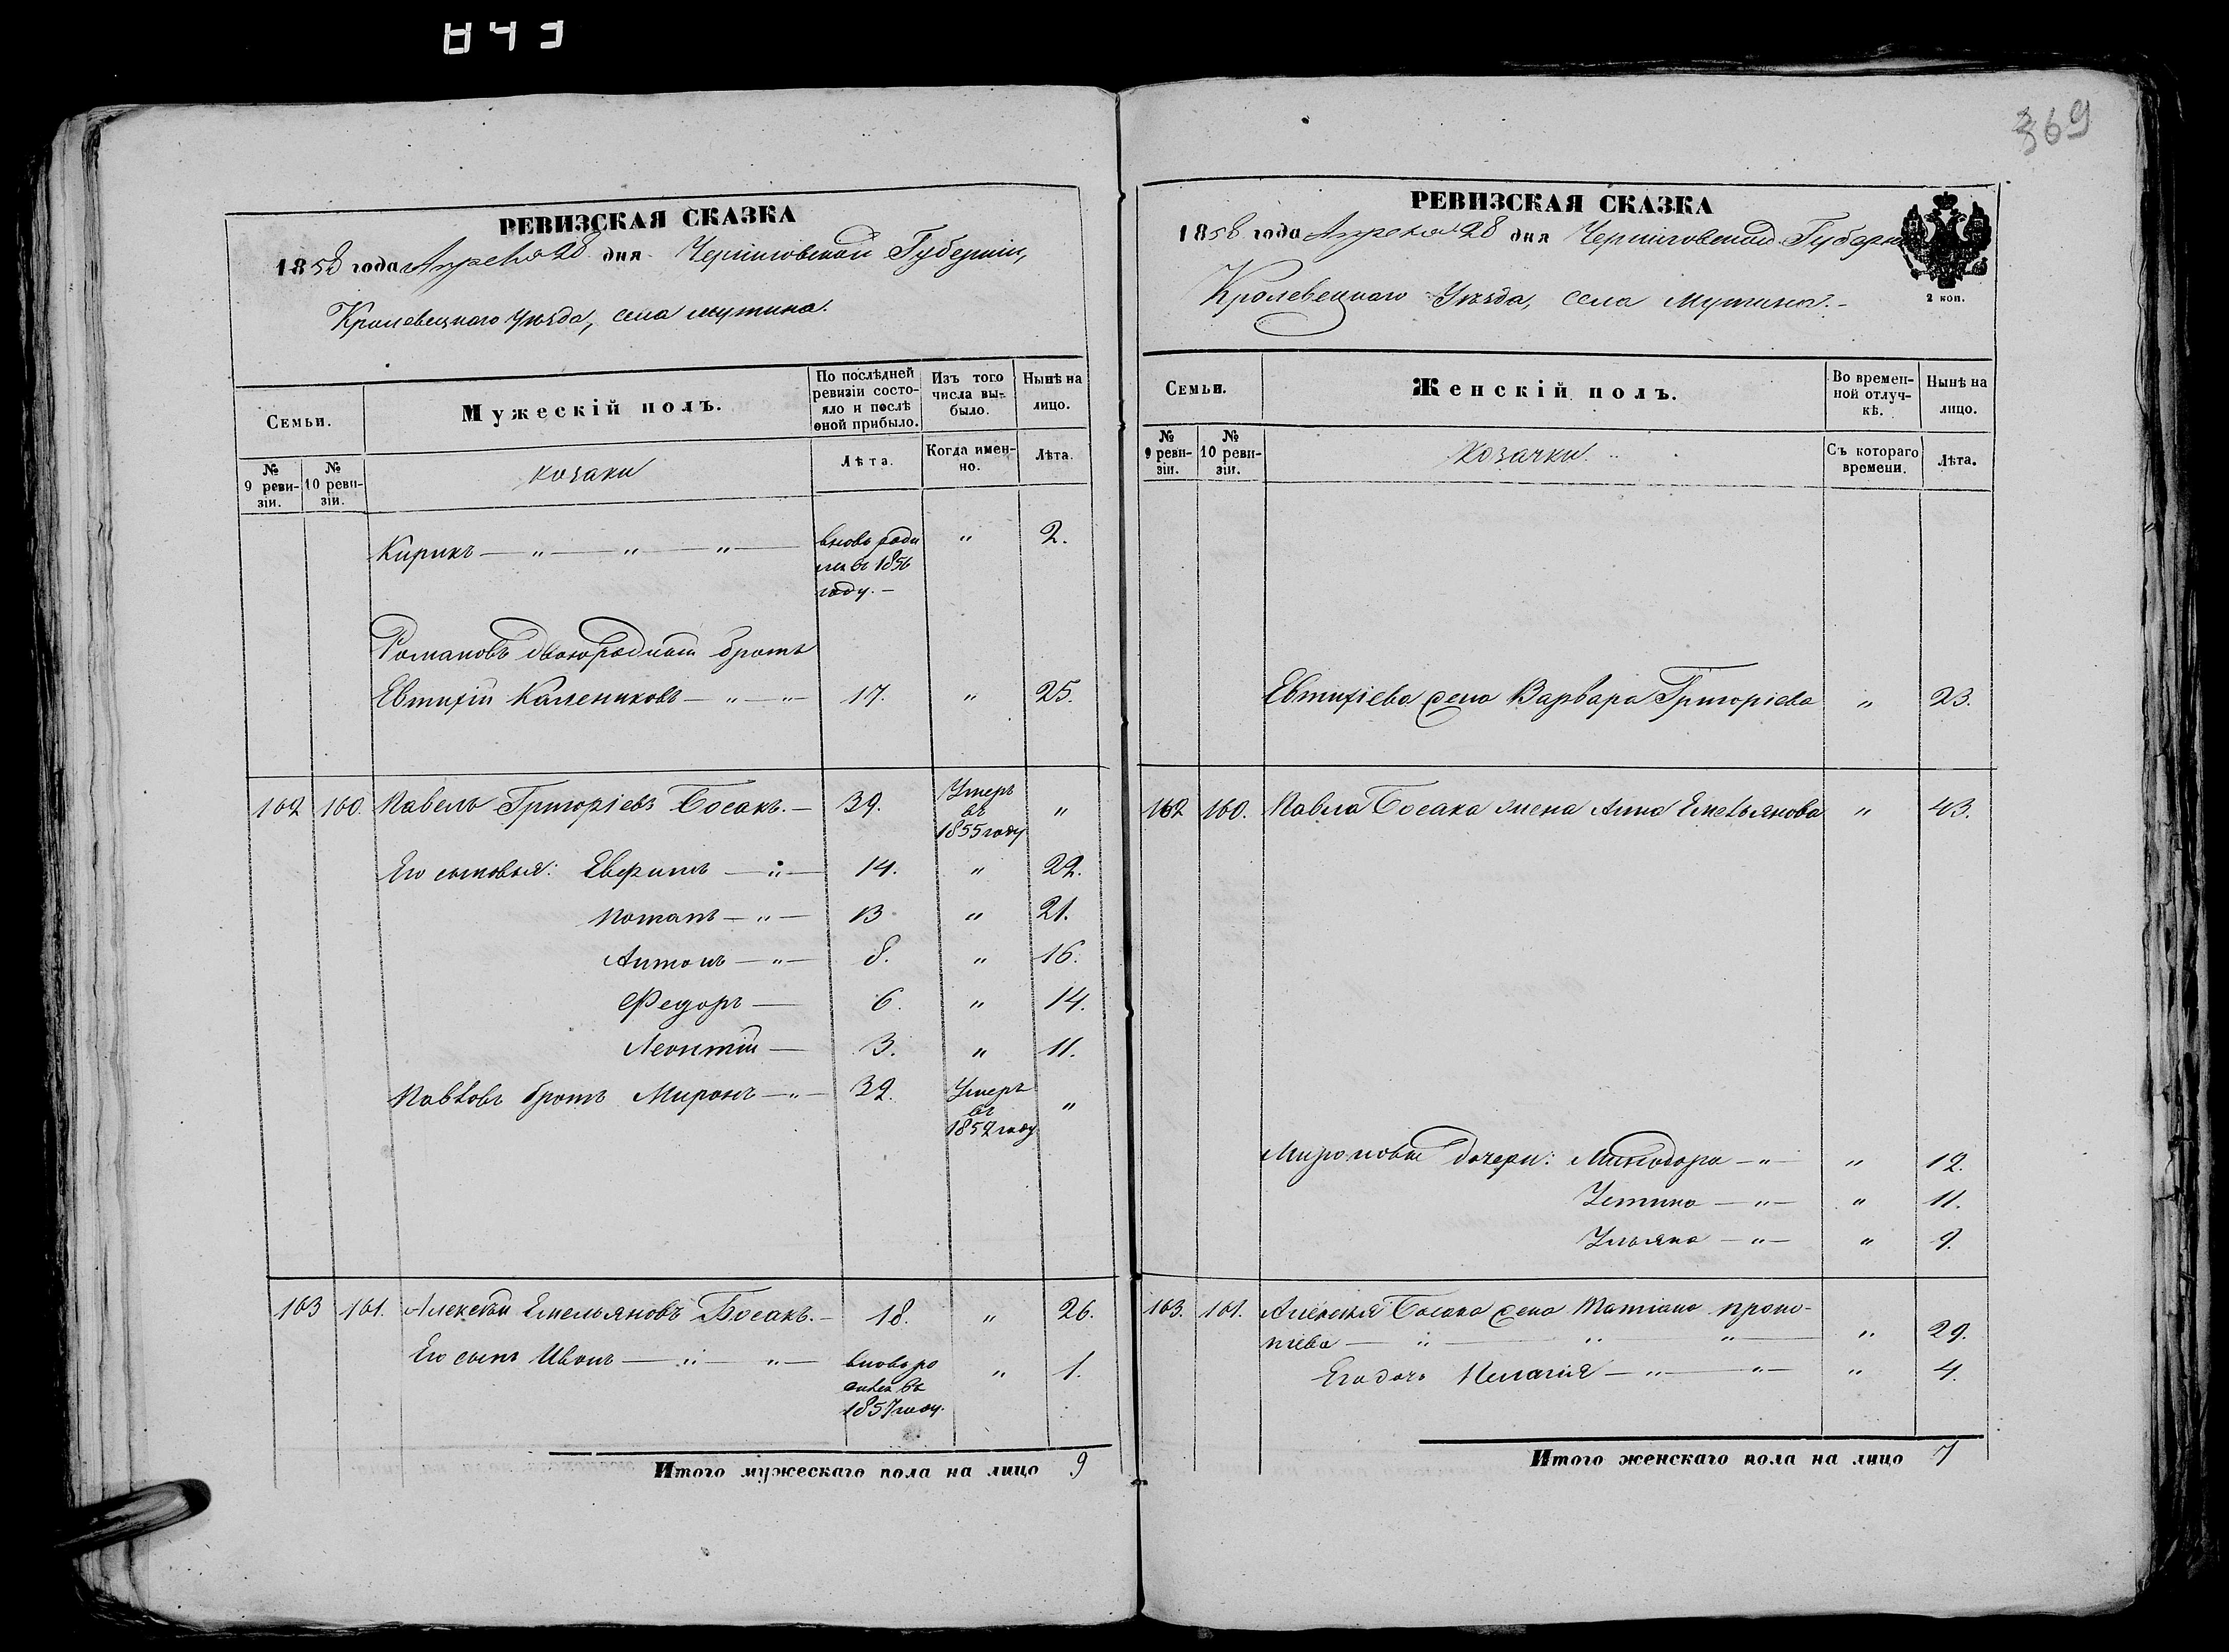 843
369
РЕВИЗСКАЯ СКАЗКА
1858 года Апреля 28 дня Черниговской Губернии,
Кролевецкаго уѣзда, села Мутина.
Семьи.
Мужескій полъ.
По послѣдней ревизіи состояло и послѣ оной прибыло.
Изъ того числа выбыло.
Нынѣ на лицо.
№ 9 ревизіи.
№ 10 ревизіи.
козаки
Лѣта.
Когда именно.
Лѣта.
Кирикъ — " — " — " — вновь роди " 2.
лся въ 1856
году. —
Романовъ двоюродный братъ
Евтихій Калениковъ — " — " 17. " 25.
162 160. Павелъ Григоріевъ Босакъ. — 39. Умеръ въ 1855 году "
Его сыновья: Евфимъ — " — 14. " 22.
Потапъ — " — 13 " 21.
Антонъ — " — 8. " 16.
Федоръ — 6. " 14.
Леонтій — 3. " 11.
Павловъ братъ Миронъ — " — 32. Умеръ въ 1852 году "
163 161. Алексѣй Емельяновъ Босакъ. — 18. " 26.
Его сынъ Иванъ — " — " — вновь ро " 1.
1857 году.
Итого мужескаго пола на лицо 9
РЕВИЗСКАЯ СКАЗКА
1858 года Апреля 28 дня Черниговской Губерніи
2 коп.
Кролевецкаго Уѣзда, села Мутина. —
Семьи.
Женскій полъ.
Во временной отлучкѣ.
Нынѣ на лицо.
№ 9 ревизіи.
№ 10 ревизіи.
Козачки.
Съ котораго времени.
Лѣта.
Евтихіева жена Варвара Григоріева " 23.
162 160. Павла Босака жена Анна Емельянова " 43.
Мироновы дочери: Минодора — " — " 12.
Устина — " — " 11.
Ульяна — " — " 9.
163. 161. Алексѣя Босака жена Татіана Проко-
піева — " — " — " — " 29.
Его дочь Пелагія — " — " — " 4.
Итого женскаго пола на лицо 7